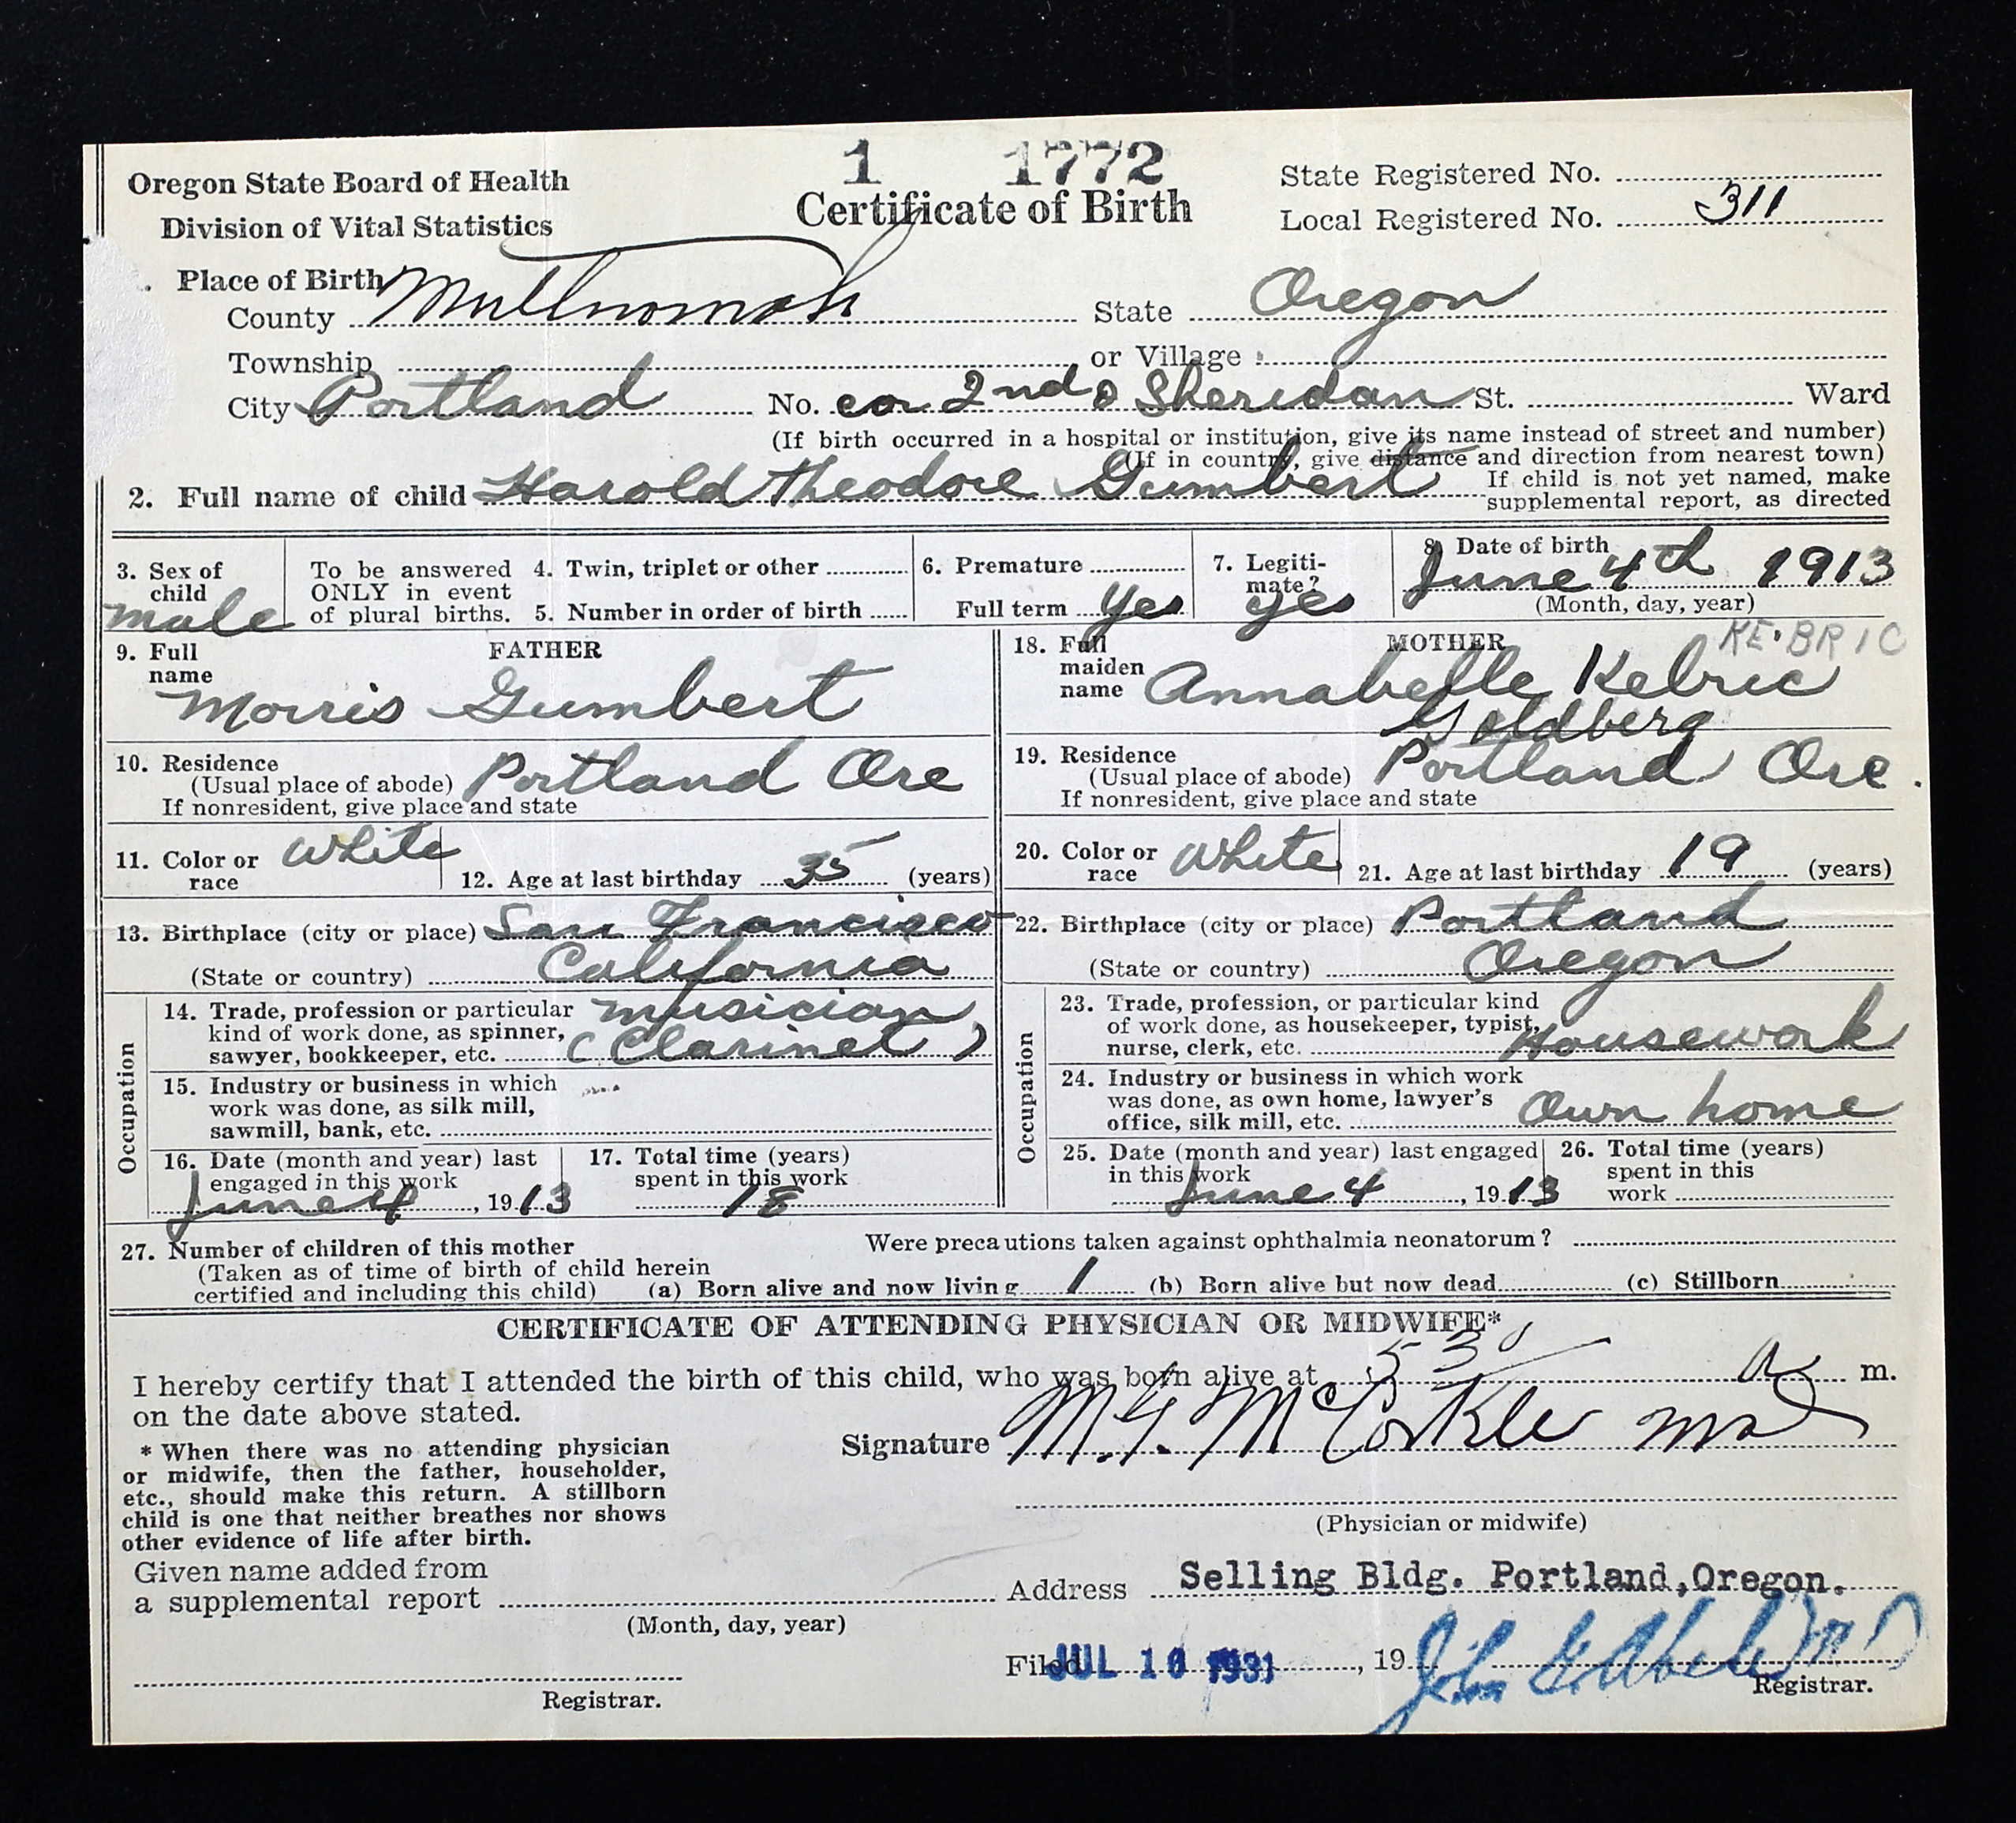 1 1772
Oregon State Board of Health
Division of Vital Statistics
Certificate of Birth
State Registered No.
Local Registered No. 311
. Place of Birth
County Multnomah State Oregon
Township or Village
City Portland No. cor 2nd & Sheridan St. Ward
(If birth occurred in a hospital or institution, give its name instead of street and number)
(If in country, give distance and direction from nearest town)
2. Full name of child Harold Theodore Gumbert
If child is not yet named, make
supplemental report, as directed
3. Sex of
child
male
To be answered
ONLY in event
of plural births.
4. Twin, triplet or other
5. Number in order of birth
6. Premature
Full term yes
7. Legiti-
mate?
yes
8. Date of birth
June 4th 1913
(Month, day, year)
9. Full
name
FATHER
Morris Gumbert
10. Residence
(Usual place of abode) Portland Ore
If nonresident, give place and state
11. Color or
race
white
12. Age at last birthday 35 (years)
13. Birthplace (city or place) San Francisco
(State or country) California
Occupation
14. Trade, profession or particular
kind of work done, as spinner,
sawyer, bookkeeper, etc.
musician
(Clarinet)
15. Industry or business in which
work was done, as silk mill,
sawmill, bank, etc.
16. Date (month and year) last
engaged in this work
June 4, 1913
17. Total time (years)
spent in this work
18
18. Full
maiden
name
MOTHER
KE·BRIC
Annabelle Kebric
Goldberg
19. Residence
(Usual place of abode) Portland Ore.
If nonresident, give place and state
20. Color or
race
white
21. Age at last birthday 19 (years)
22. Birthplace (city or place) Portland
(State or country) Oregon
Occupation
23. Trade, profession, or particular kind
of work done, as housekeeper, typist,
nurse, clerk, etc. Housework
24. Industry or business in which work
was done, as own home, lawyer's
office, silk mill, etc. Own home
25. Date (month and year) last engaged
in this work
June 4, 1913
26. Total time (years)
spent in this
work
27. Number of children of this mother
(Taken as of time of birth of child herein
certified and including this child)
Were precautions taken against ophthalmia neonatorum?
(a) Born alive and now living 1 (b) Born alive but now dead (c) Stillborn
CERTIFICATE OF ATTENDING PHYSICIAN OR MIDWIFE*
I hereby certify that I attended the birth of this child, who was born alive at 530 a m.
on the date above stated.
* When there was no attending physician
or midwife, then the father, householder,
etc., should make this return. A stillborn
child is one that neither breathes nor shows
other evidence of life after birth.
Signature M.G. McCorkle MD
(Physician or midwife)
Given name added from
a supplemental report
(Month, day, year)
Registrar.
Address Selling Bldg. Portland, Oregon.
Filed JUL 10 1931, 19
John G. Abele M D
Registrar.